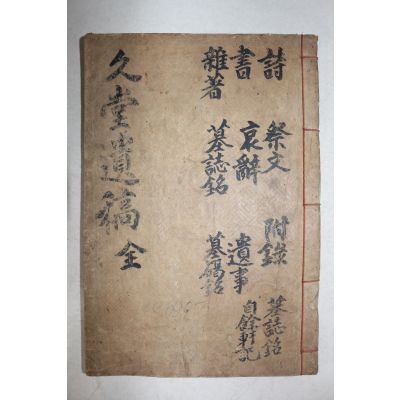 詩 祭文 附錄 墓誌銘
書 哀辭 遺事 自餘軒記
雜著 墓誌銘 墓碣銘
久堂遺稿 全